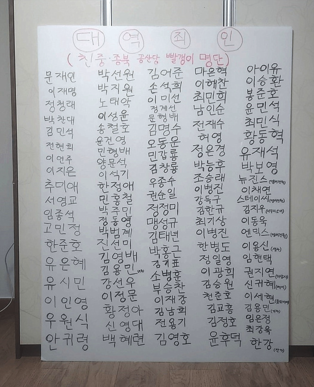 대역죄인
(친중종북 공산당 빨갱이 명단)
문재인
이재명
정청래
박찬대
김민석
전현희
이언주
이지은
추미애
서영교
임종석
고민정
한준호
유은혜
유시민
이인영
우원식
안귀령
박선원
박지원
노태악
이성윤
송철호
윤건영
민형배
양문석
이석기
한정애
민홍철
박주민
정동영
박범계
진선미
김영배
김용민
강선우
이정문
황정아
신영대
백혜련
김어준
손석희
이미선
정계선
문형배
김명수
오동운
민갑룡
김창룡
우종수
권순일
정정미
맹성규
김태년
박홍근
소병훈
부승찬
이재강
김남희
전용기
김영호
마은혁
이해찬
최민희
남인순
전재수
허영
정은경
박능후
조승래
이병진
강득구
김한규
최기상
이병진
한병도
정일영
이광희
김승원
천준호
김교흥
김정호
윤후덕
아이유
이승환
봉준호
윤민석
최민식
황동혁
유재석
박보영
뉴진스
이채연
스테이씨
김지우
이동욱
엔믹스
이윤신
임현택
권지연
신귀혜
이서현
김용민
임은정
최강욱
한강